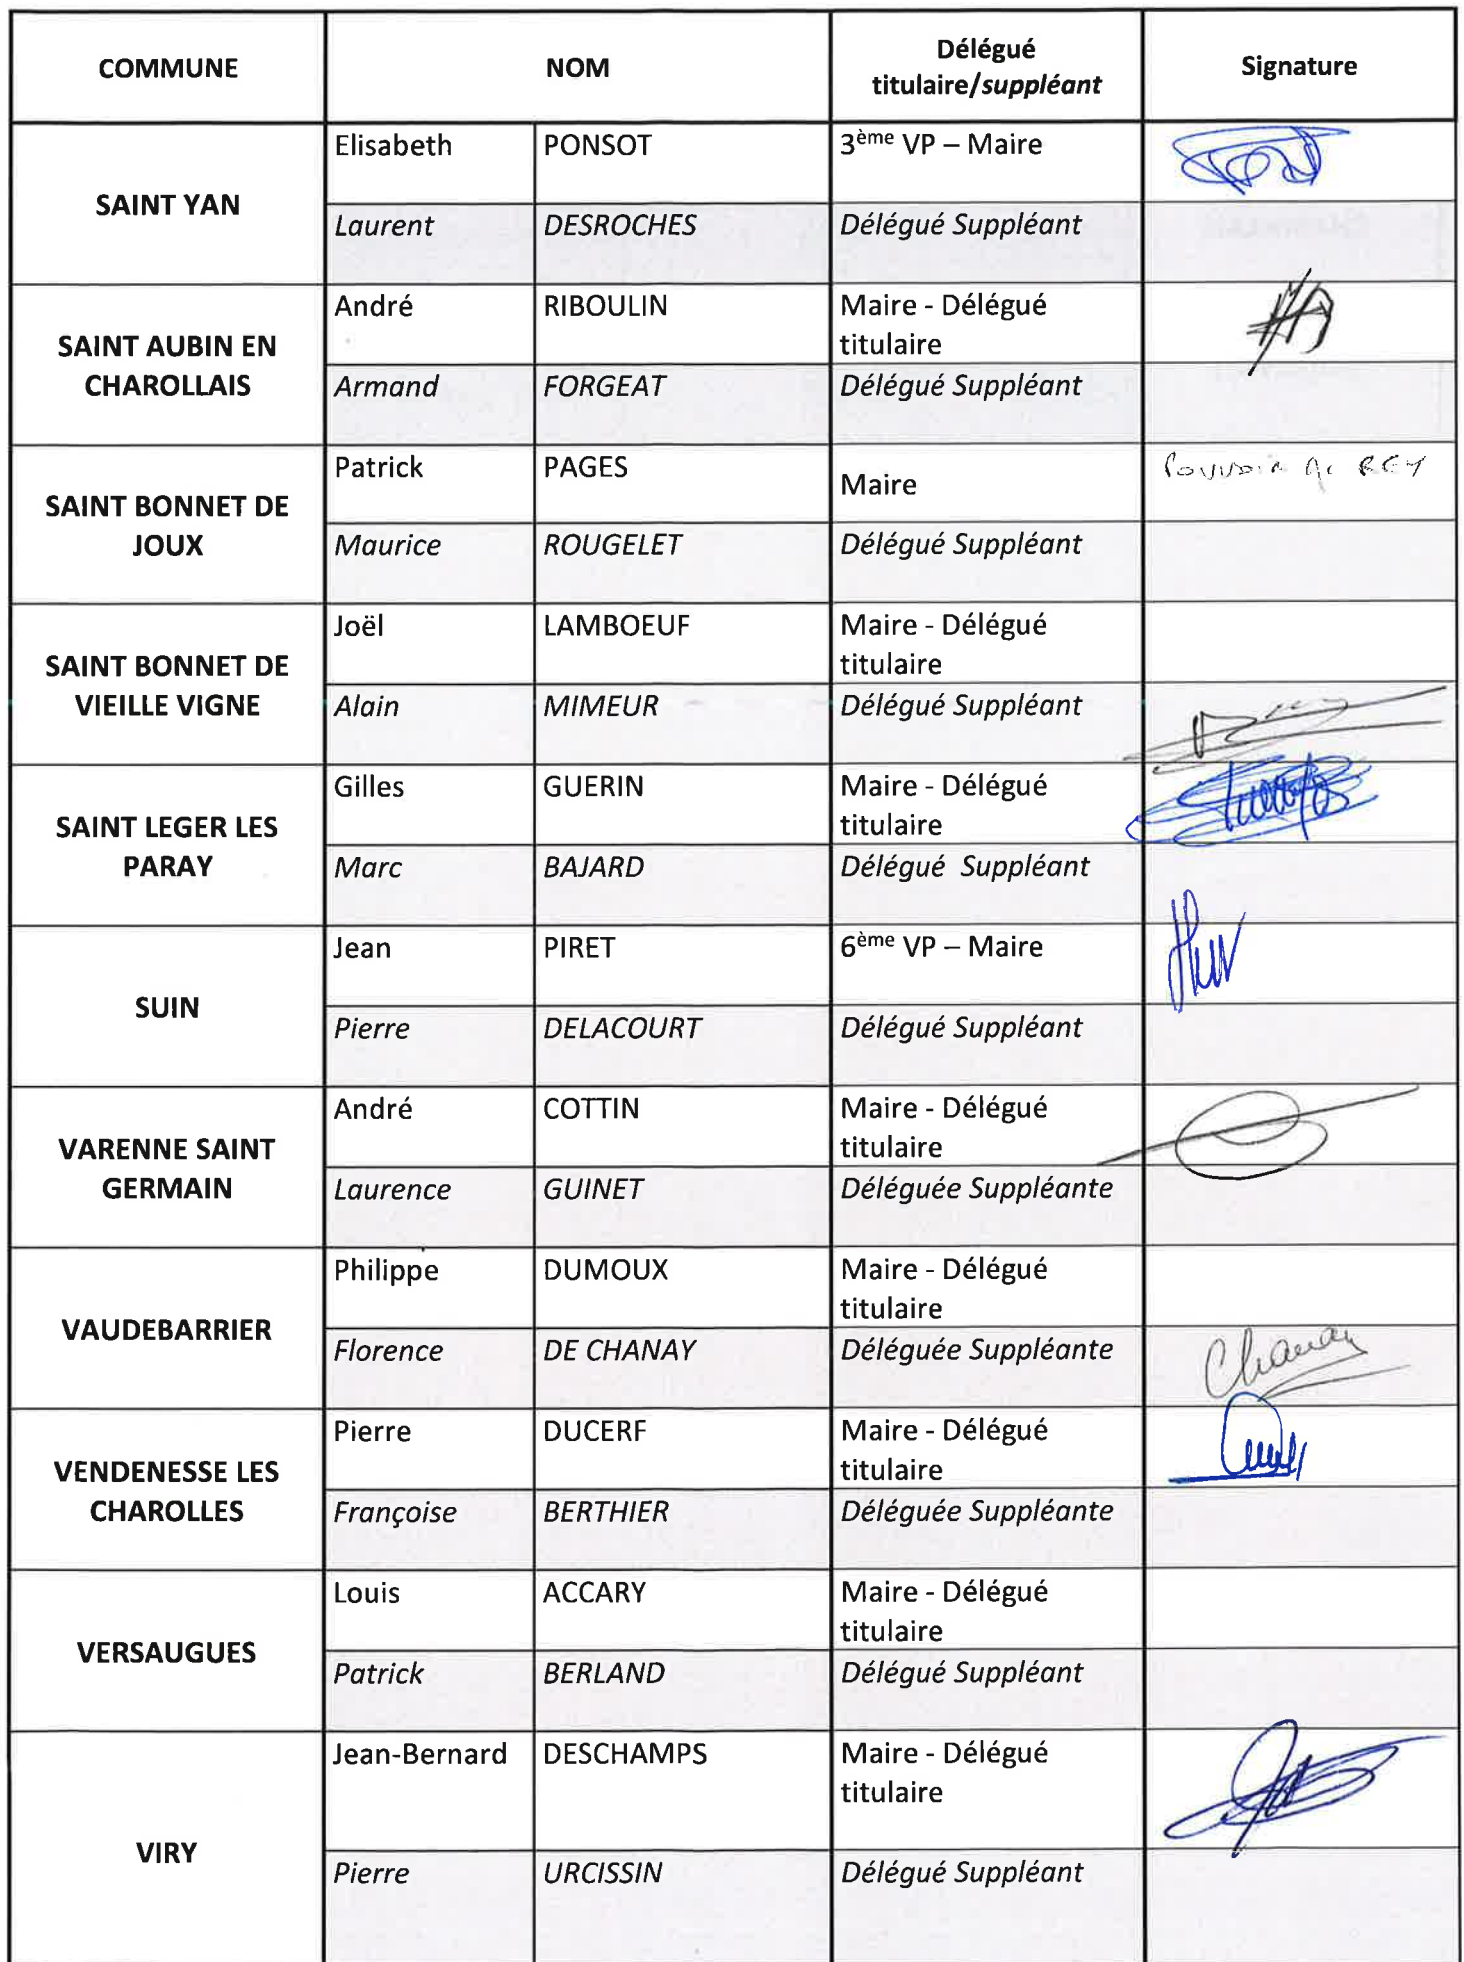 COMMUNE NOM Délégué titulaire/suppléant Signature
SAINT YAN
Elisabeth PONSOT 3ème VP – Maire
Laurent DESROCHES Délégué Suppléant
SAINT AUBIN EN
CHAROLLAIS
André RIBOULIN Maire - Délégué
titulaire
Armand FORGEAT Délégué Suppléant
SAINT BONNET DE
JOUX
Patrick PAGES Maire Pouvoir REY
Maurice ROUGELET Délégué Suppléant
SAINT BONNET DE
VIEILLE VIGNE
Joël LAMBOEUF Maire - Délégué
titulaire
Alain MIMEUR Délégué Suppléant
SAINT LEGER LES
PARAY
Gilles GUERIN Maire - Délégué
titulaire
Marc BAJARD Délégué Suppléant
SUIN
Jean PIRET 6ème VP – Maire
Pierre DELACOURT Délégué Suppléant
VARENNE SAINT
GERMAIN
André COTTIN Maire - Délégué
titulaire
Laurence GUINET Déléguée Suppléante
VAUDEBARRIER
Philippe DUMOUX Maire - Délégué
titulaire
Florence DE CHANAY Déléguée Suppléante Chanay
VENDENESSE LES
CHAROLLES
Pierre DUCERF Maire - Délégué
titulaire
Françoise BERTHIER Déléguée Suppléante
VERSAUGUES
Louis ACCARY Maire - Délégué
titulaire
Patrick BERLAND Délégué Suppléant
VIRY
Jean-Bernard DESCHAMPS Maire - Délégué
titulaire
Pierre URCISSIN Délégué Suppléant